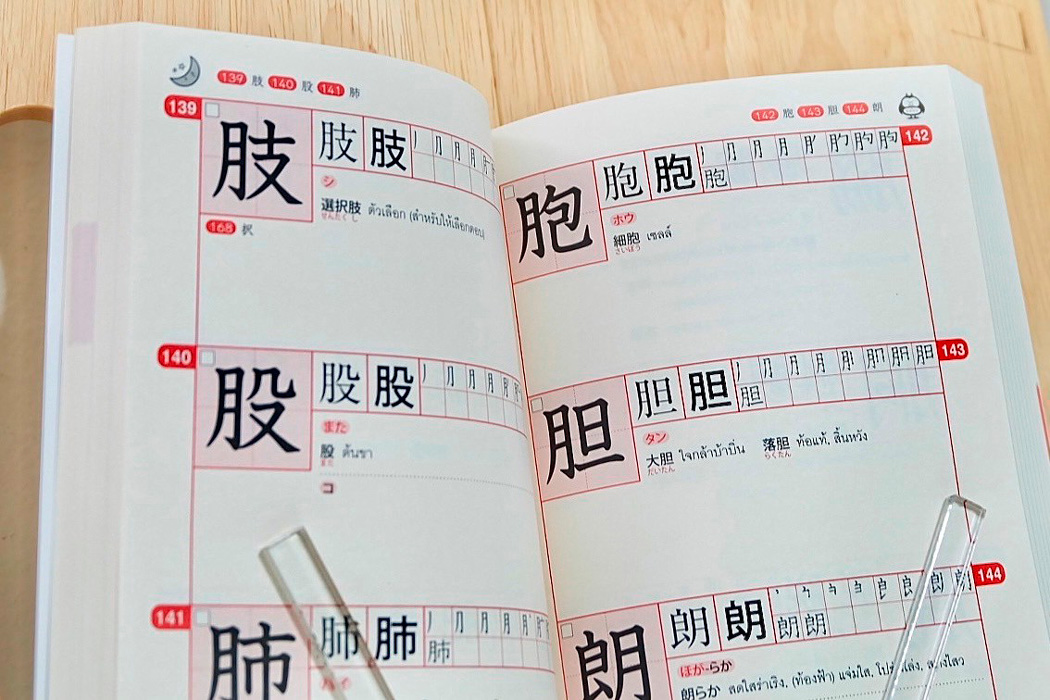 139 肢 140 股 141 肺
139
肢 肢 肢
シ
選択肢 ตัวเลือก (สำหรับให้เลือกตอบ)
せんたく し
168 択
140
股 股 股
また
股 ต้นขา
また
コ
141
肺 肺 肺
肺
ハイ
142 胞 143 胆 144 朗
142
胞 胞 胞
胞
ホウ
細胞 เซลล์
さいぼう
143
胆 胆 胆
胆
タン
大胆 ใจกล้าบ้าบิ่น 落胆 ท้อแท้, สิ้นหวัง
だいたん らくたん
144
朗 朗 朗
朗 朗
ほが-らか
朗らか สดใสร่าเริง, (ท้องฟ้า) แจ่มใส,